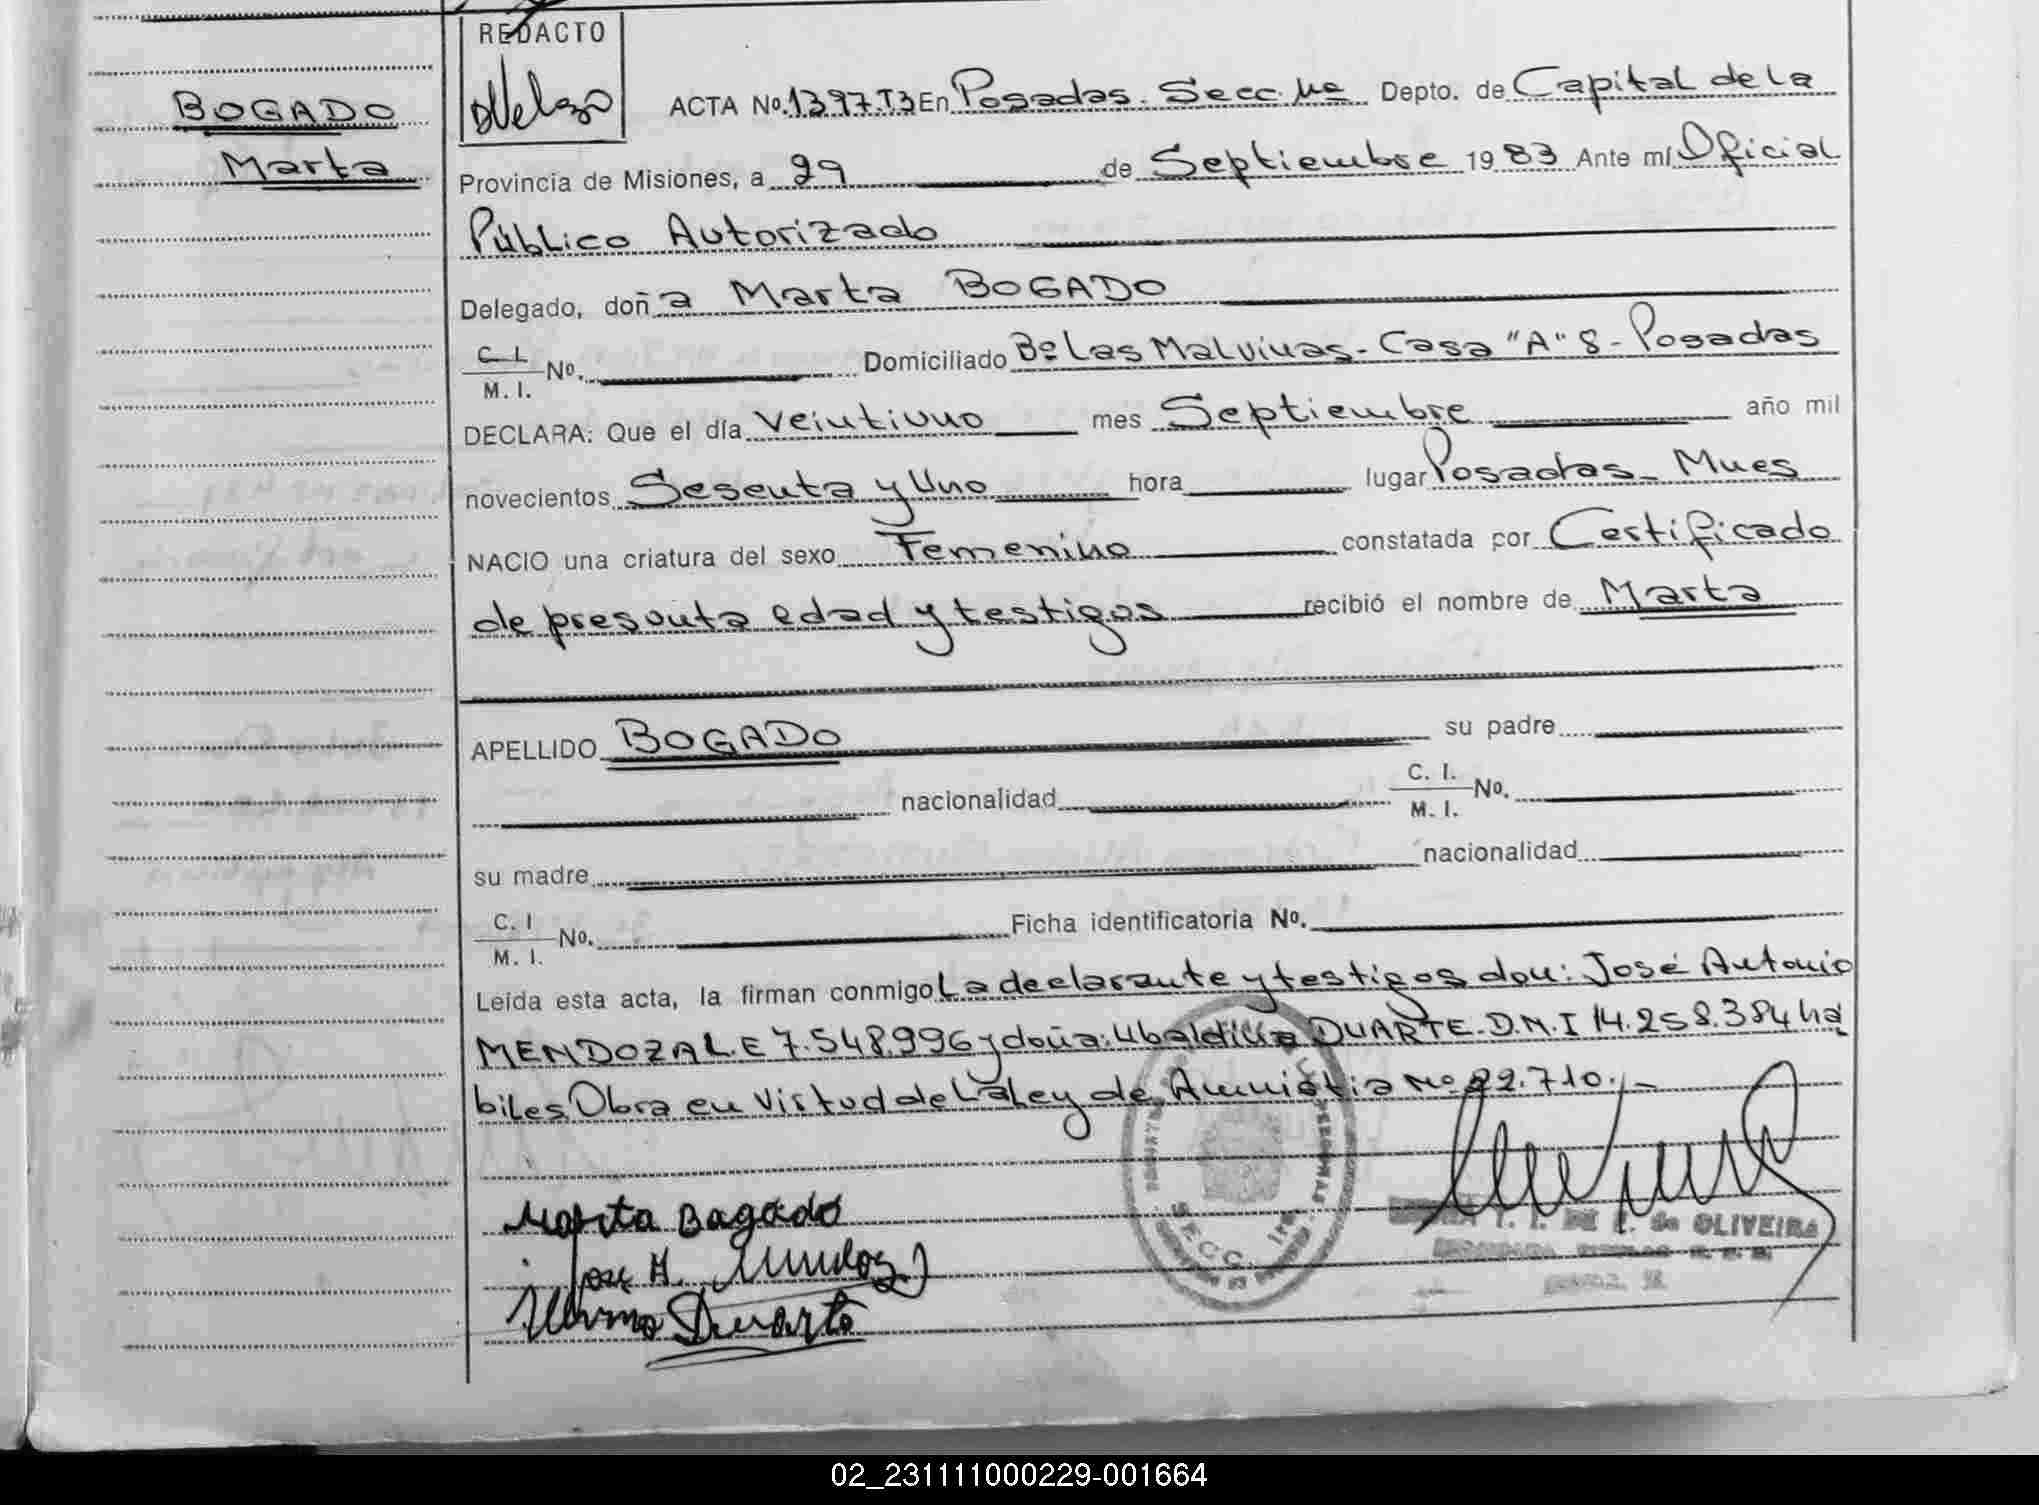 REDACTO
BOGADO
Marta
ACTA No. 1397.T3 En Posadas. Secc. 1ra Depto. de Capital de La
Provincia de Misiones, a 29 de Septiembre 1983 Ante mí Oficial
Público Autorizado
Delegado, doña Marta BOGADO
C. I.
M. I. No. Domiciliado Bo Las Malvinas - Casa "A" 8 - Posadas
DECLARA: Que el día veintiuno mes Septiembre año mil
novecientos Sesenta y Uno hora lugar Posadas - Mnes
NACIO una criatura del sexo Femenino constatada por Certificado
de presunta edad y testigos recibió el nombre de Marta
APELLIDO BOGADO su padre
nacionalidad C. I. M. I. No.
su madre nacionalidad
C. I M. I. No. Ficha identificatoria No.
Leída esta acta, la firman conmigo La declarante y testigos don: José Antonio
MENDOZA L.E 7.548.996 y doña: Ubaldina DUARTE. D.N.I 14.258.384 há
biles Obra en virtud de La Ley de Amnistia No 22.710.-
Marta Bagado
Duarte
SECC. 1ra
DE OLIVEIRA
02_231111000229-001664